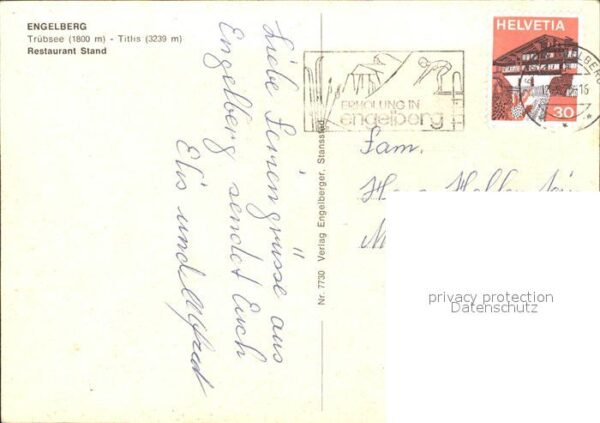 ENGELBERG
Trübsee (1800 m) - Titlis (3239 m)
Restaurant Stand
Liebe Feriengrüsse aus
Engelberg sendet Euch
Elis und Alfred
Nr. 7730 Verlag Engelberger, Stansstad
ERHOLUNG IN
engelberg
HELVETIA
30
Fam.
Hans
privacy protection
Datenschutz